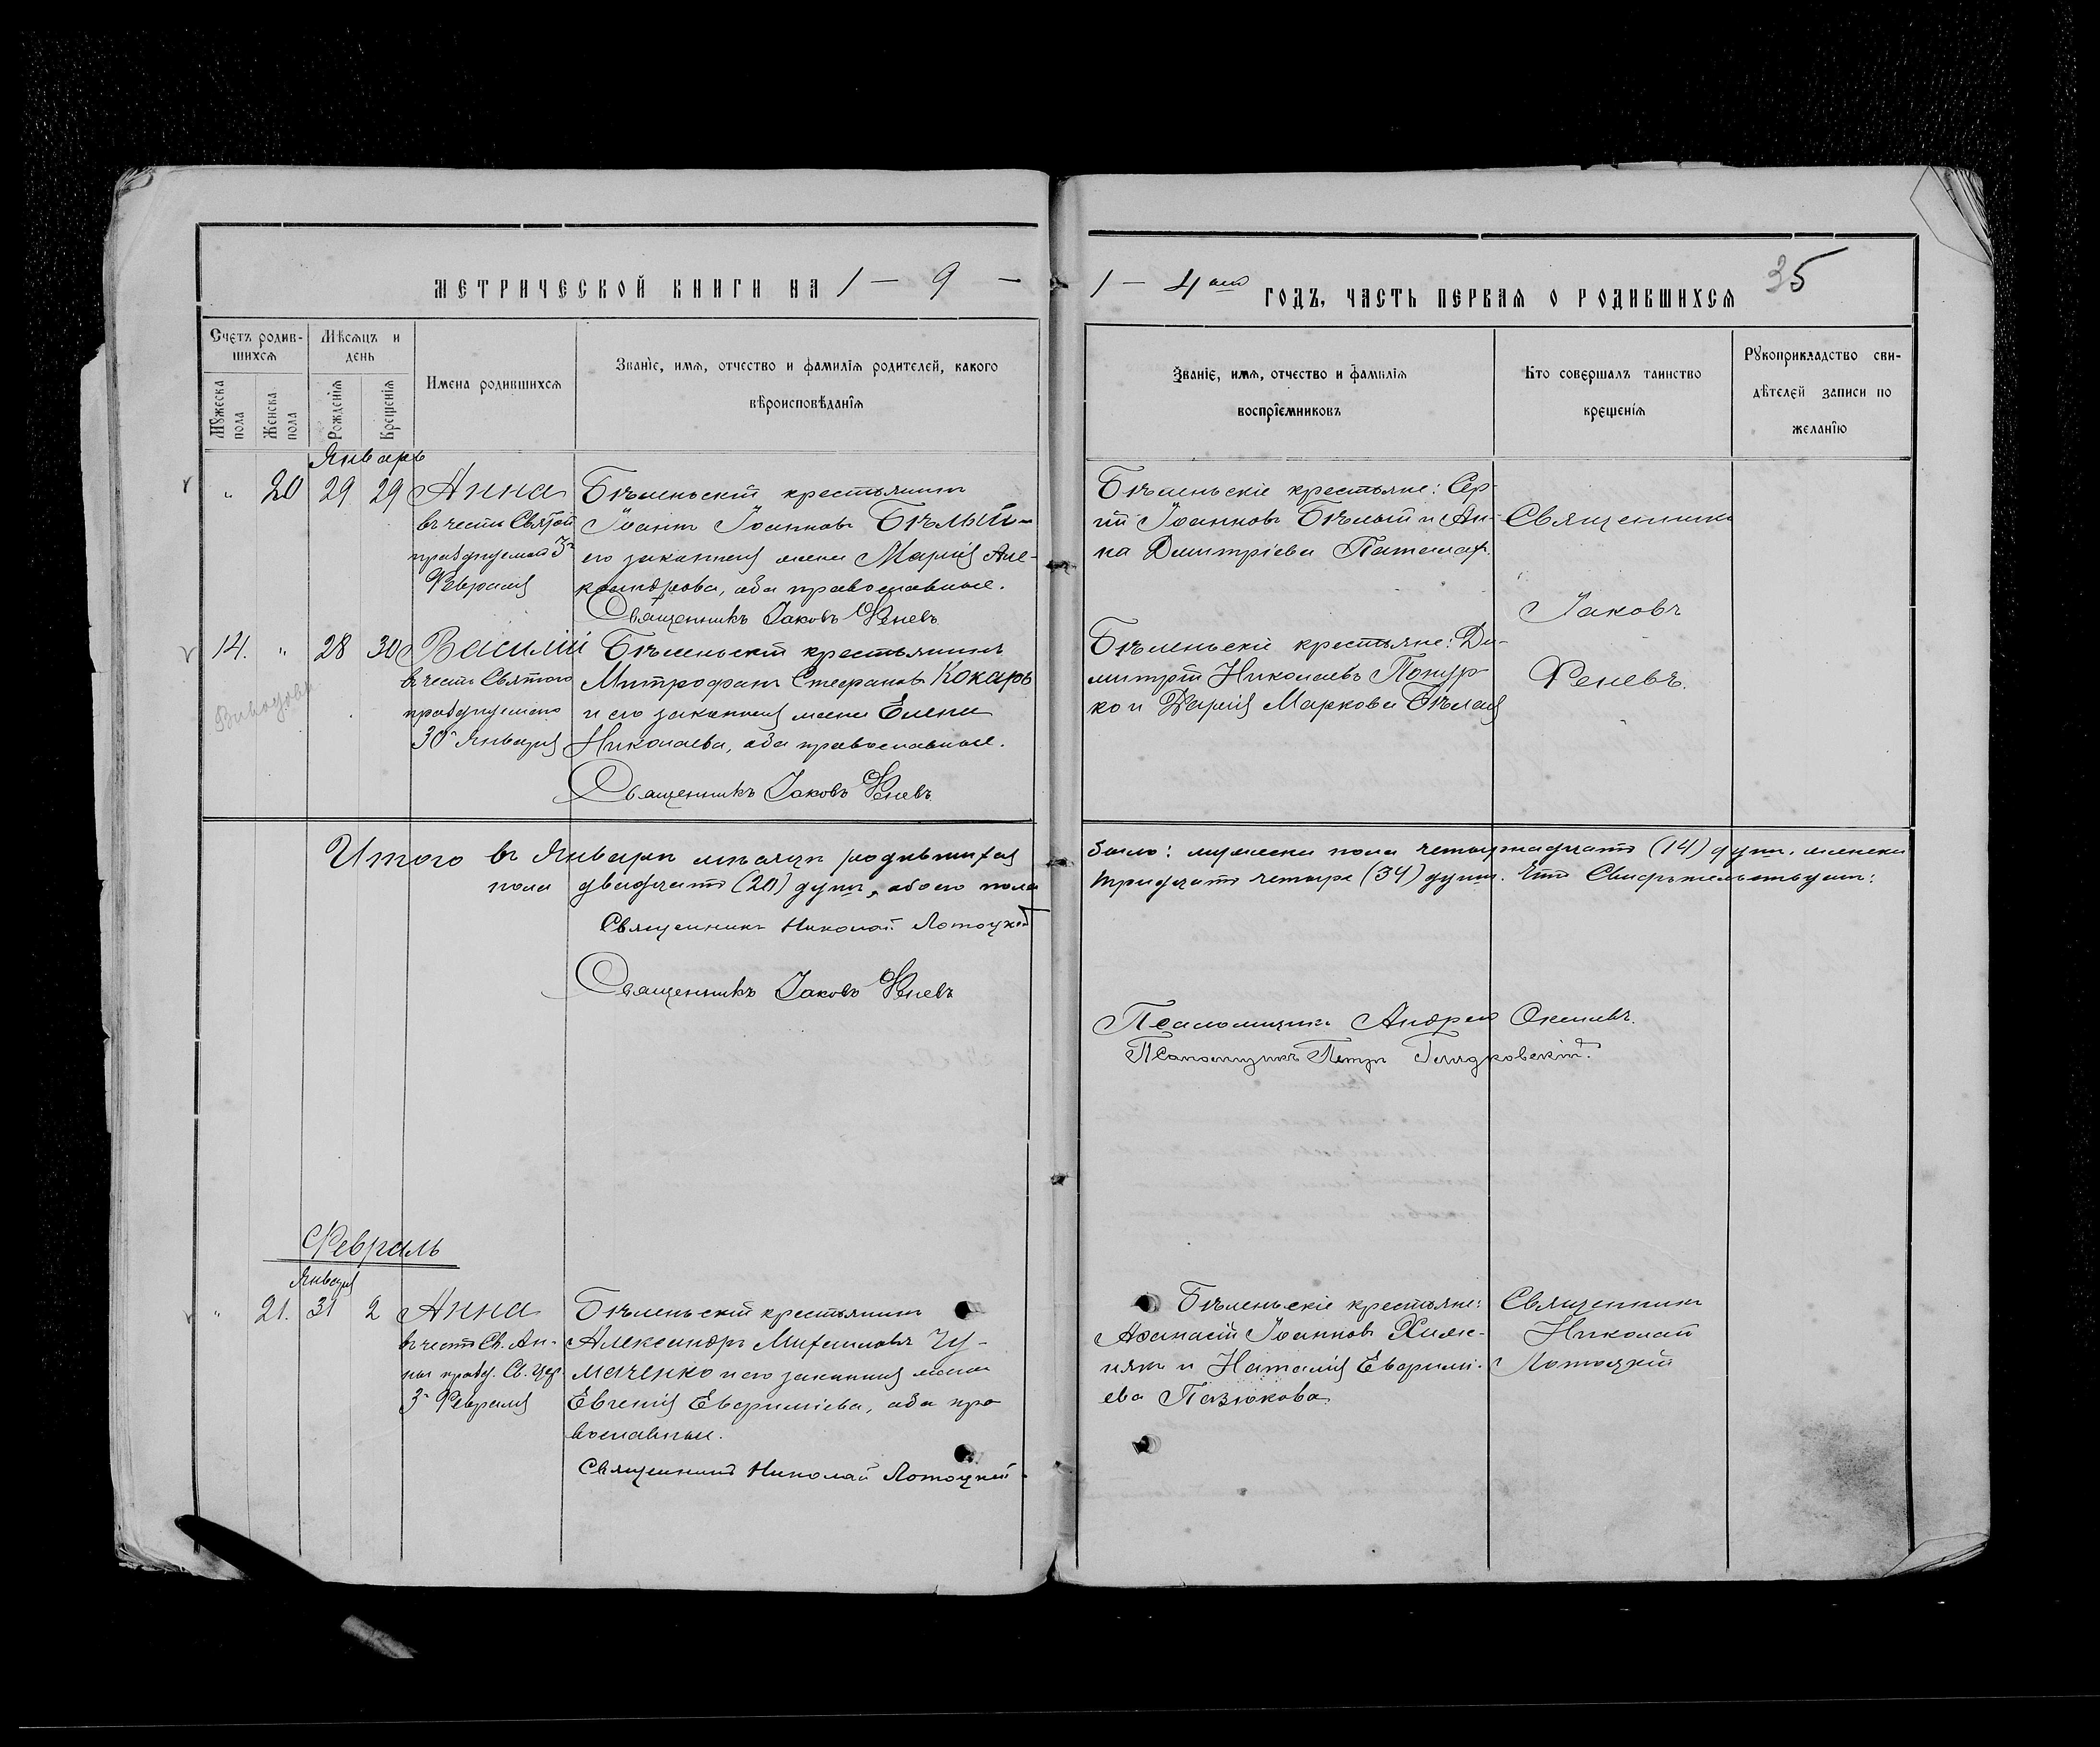 МЕТРИЧЕСКОЙ КНИГИ НА 1 — 9 —
1 — 4 ый ГОДЪ, ЧАСТЬ ПЕРВАЯ О РОДИВШИХСЯ
35
Счетъ родив-
шихся
Мѣсяцъ и
день
Имена родившихся
Званіе, имя, отчество и фамилія родителей, какого
вѣроисповѣданія
Мужеска
пола
Женска
пола
Рожденія
Крещенія
Званіе, имя, отчество и фамилія
воспріемниковъ
Кто совершалъ таинство
крещенія
Рукоприкладство сви-
дѣтелей записи по
желанію
Январь
" 20 29 29 Анна
въ честь Святой
празднуемой 3го
Февраля
Бѣленьскій крестьянинъ
Іоаннъ Іоанновъ Бѣлый
его законная жена Марія Але-
ксандрова, оба православные.
Священникъ Іаковъ Феневъ
Бѣленьскіе крестьяне: Сер-
гій Іоанновъ Бѣлый и Ан-
на Димитріева
Священникъ
Іаковъ
Феневъ.
14. " 28 30 Василій
въ честь Святого
празднуемаго
30го Января
Бѣленьскій крестьянинъ
Митрофанъ Стефановъ Кокарь
и его законная жена Елена
Николаева, оба православные.
Священникъ Іаковъ Феневъ
Бѣленьскіе крестьяне: Ди-
митрій Николаевъ Понур
ко и Дарія Маркова Бѣлая
Итого въ Январѣ мѣсяцѣ родившихся
было: мужеска пола четырнадцать (14) душъ, женска
пола двадцать (20) душъ, обоего пола
тридцать четыре (34) душъ. Что Свидѣтельствуютъ:
Священникъ Николай Лотоцкій
Священникъ Іаковъ Феневъ
Псаломщикъ Андрей
Псаломщикъ Петръ
Февраль
Января
" 21. 31 2 Анна
въ честь Св. Ан-
ны празд. Св. цер.
3го Февраля
Бѣленьскій крестьянинъ
Александръ Михаиловъ Чу-
маченко и его законная жена
Евгенія Евфиміева, оба пра
вославные.
Священникъ Николай Лотоцкій
Бѣленьскіе крестьяне:
Афанасій Іоанновъ Хиж-
някъ и Наталія Евфимі-
ева Пазюкова
Священникъ
Николай
Лотоцкій